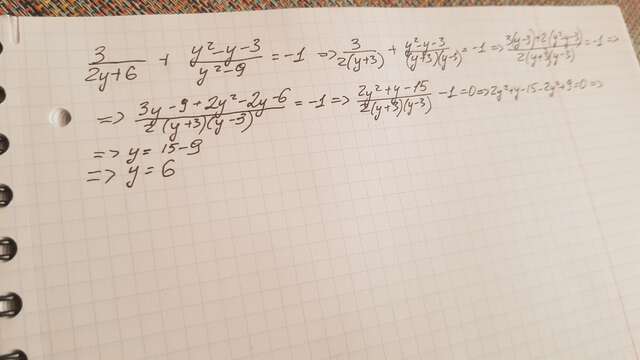 3/(2y+6) + (y²-y-3)/(y²-9) = -1 => 3/(2(y+3)) + (y²-y-3)/((y+3)(y-3)) = -1 => (3(y-3)+2(y²-y-3))/(2(y+3)(y-3)) = -1 =>
=> (3y-9+2y²-2y-6)/(2(y+3)(y-3)) = -1 => (2y²+y-15)/(2(y+3)(y-3)) - 1 = 0 => 2y²+y-15-2y²+9=0 =>
=> y = 15-9
=> y = 6